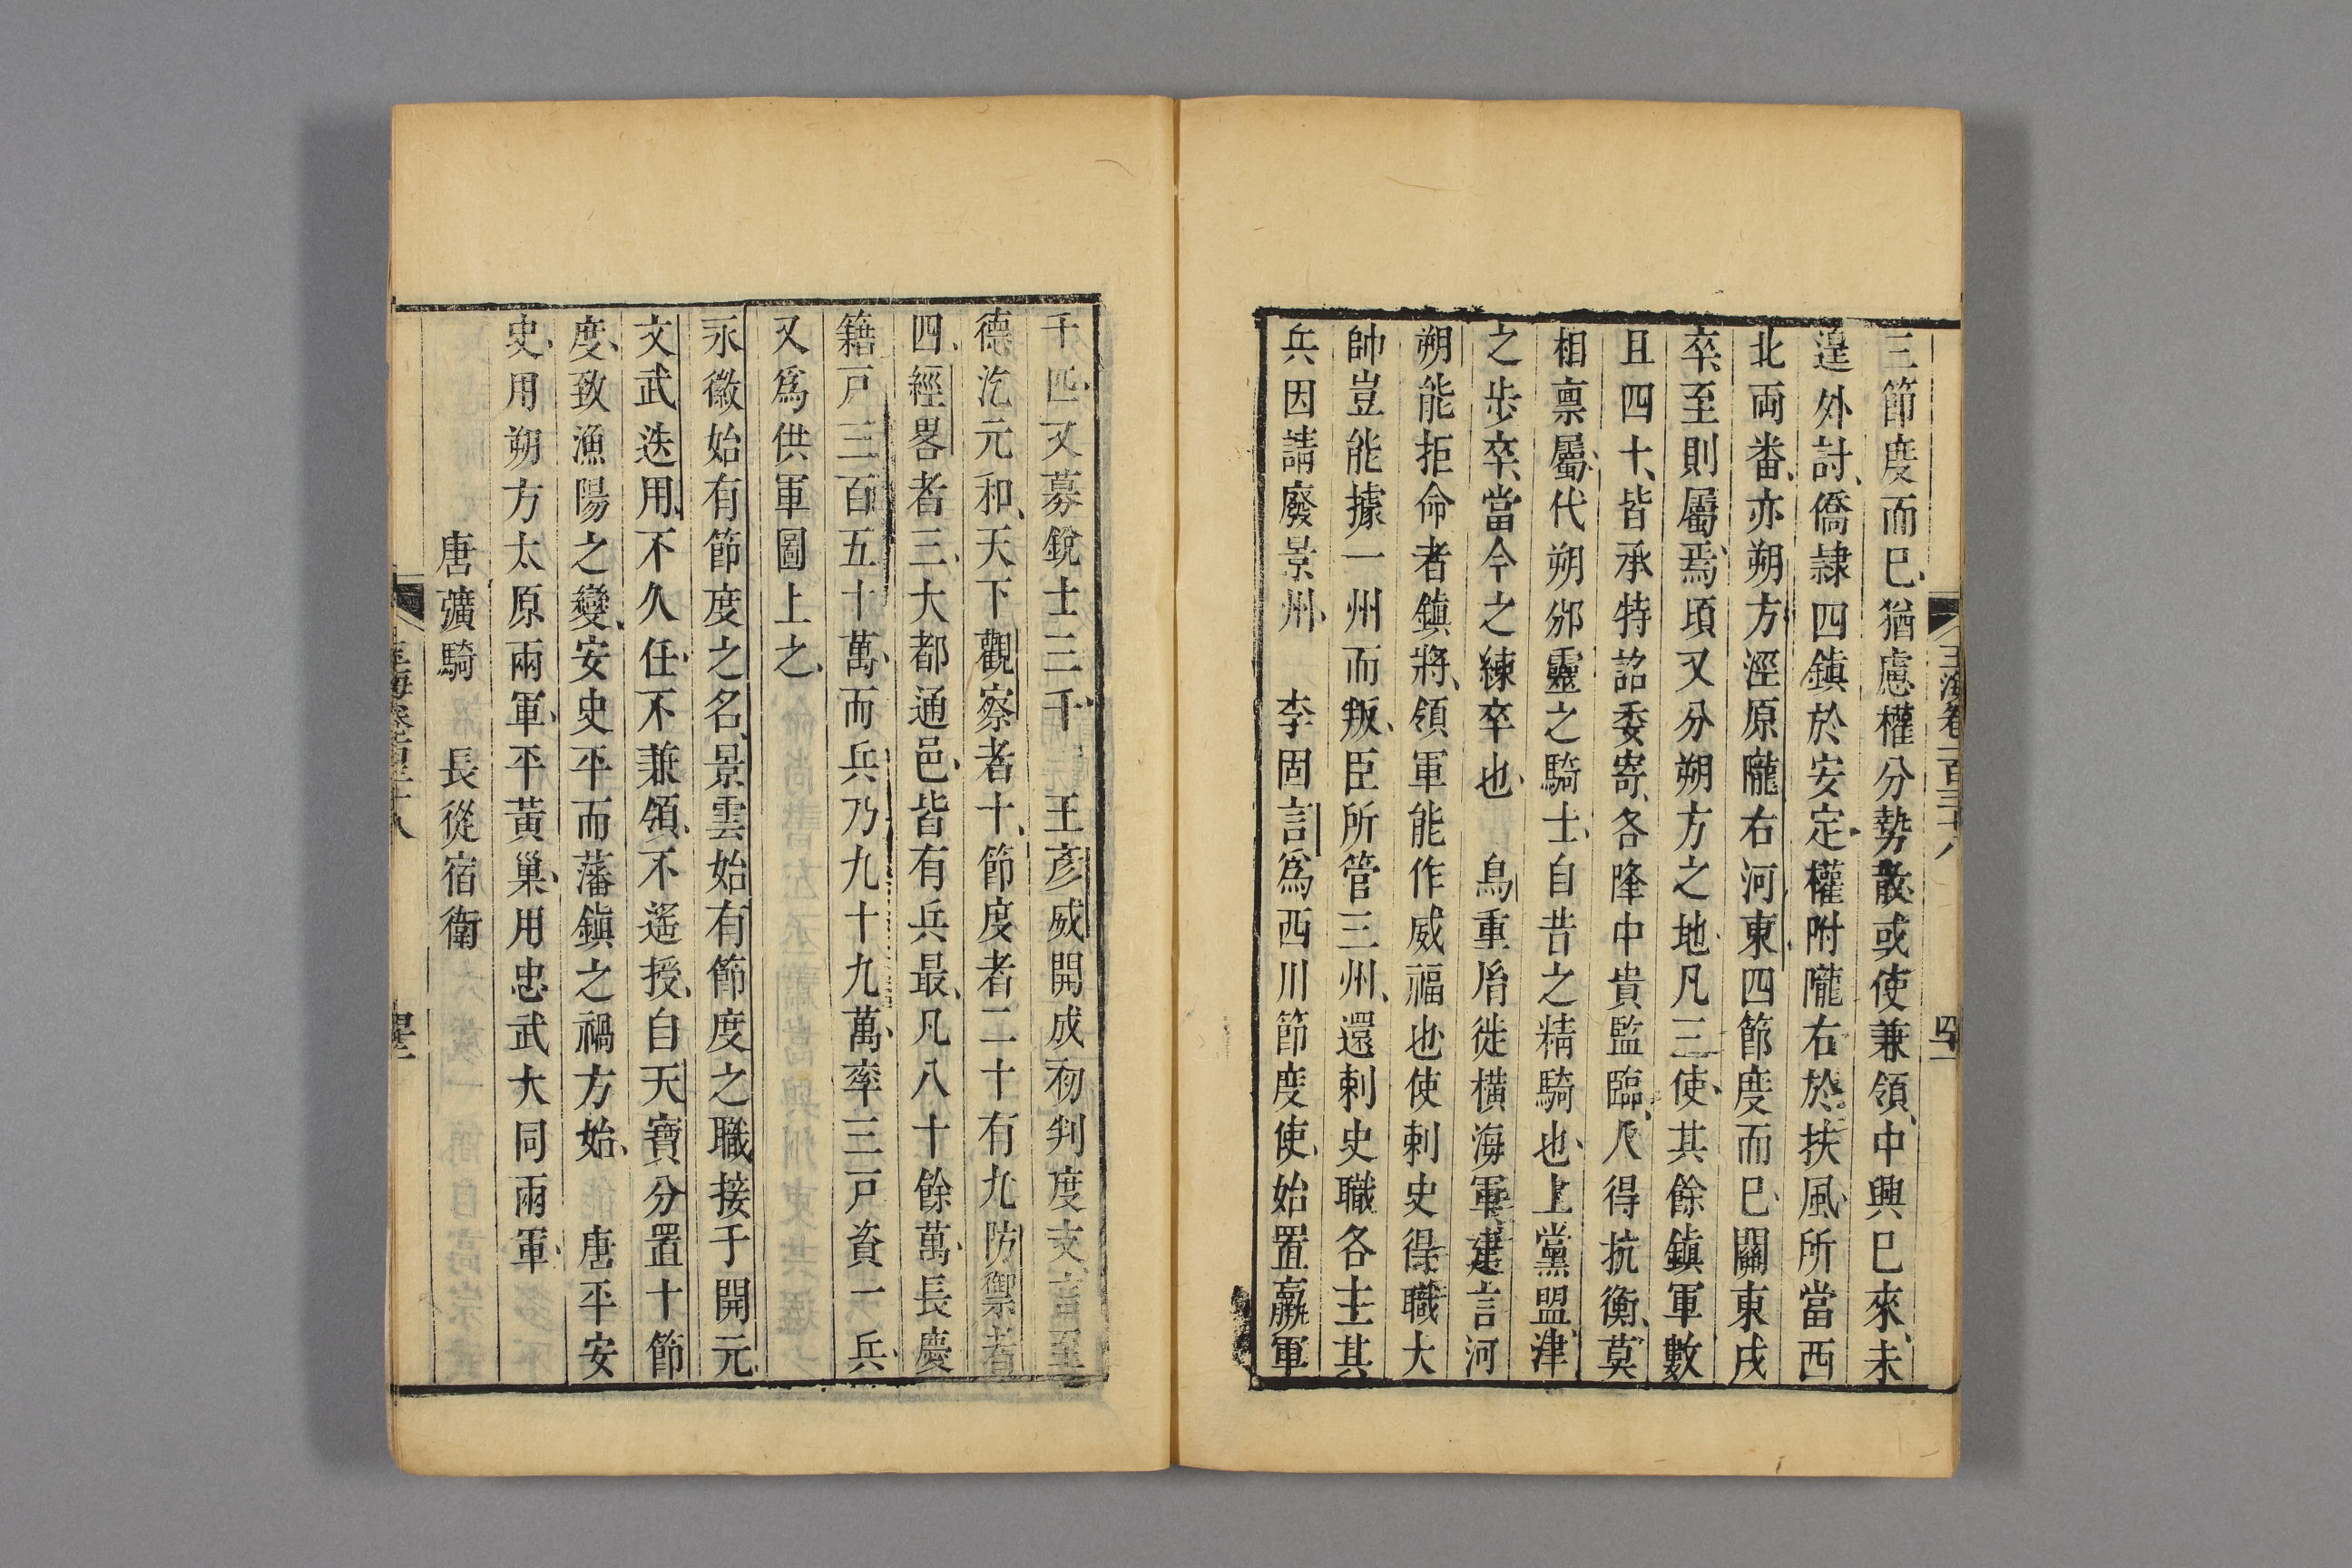 玉海卷一百三十八
三節度而已猶慮權分勢散或使兼領中興已來未
遑外討僑隷四鎮於安定權附隴右於扶風所當西
北兩畨亦朔方涇原隴右河東四節度而已關東戍
卒至則屬焉頃又分朔方之地凡三使其餘鎮軍數
且四十皆承特詔委寄各降中貴監臨人得抗衡莫
相禀屬代朔邠靈之騎士自昔之精騎也上黨盟津
之步卒當今之練卒也　烏重胤徙橫海軍建言河
朔能拒命者鎮將領軍能作威福也使刺史得職大
帥豈能據一州而叛臣所管三州還刺史職各主其
兵因請廢景州　李固言爲西川節度使始置羸軍
千匹又募銳士三千　王彥威開成初判度支言至
德汔元和天下觀察者十節度者二十有九防禦者
四經畧者三大都通邑皆有兵最凡八十餘萬長慶
籍戸三百五十萬而兵乃九十九萬率三戸資一兵
又爲供軍圖上之
永徽始有節度之名景雲始有節度之職接于開元
文武迭用不久任不兼領不遙授自天寶分置十節
度致漁陽之變安史平而藩鎮之禍方始　唐平安
史用朔方太原兩軍平黃巢用忠武大同兩軍
唐彍騎　長從宿衛